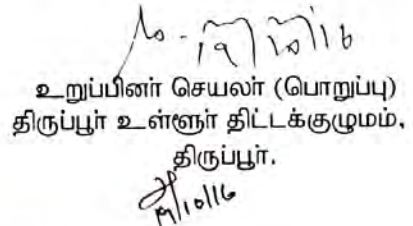 19/10/16
உறுப்பினர் செயலர் (பொறுப்பு)
திருப்பூர் உள்ளூர் திட்டக்குழுமம்,
திருப்பூர்.
19/10/16